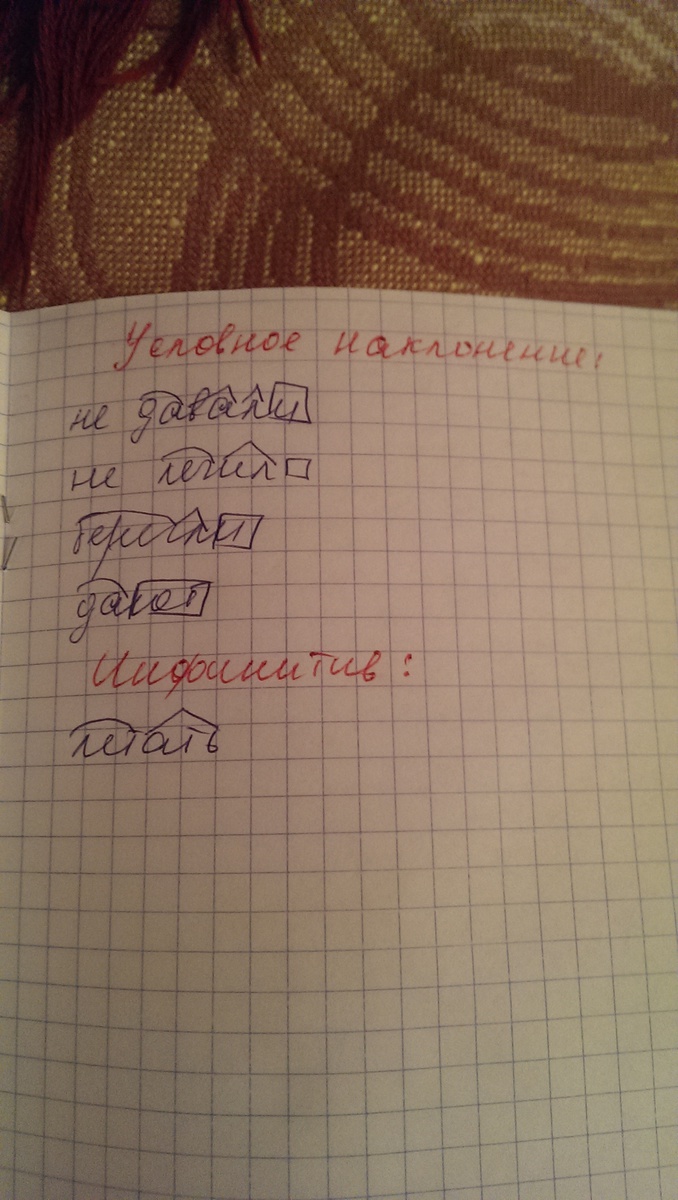 Условное наклонение:
не давали
не лечил
берегли
дают
Инфинитив:
летать